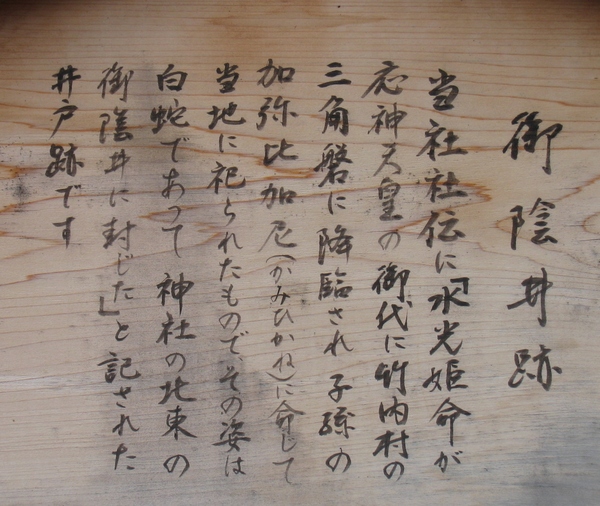 御陰井跡
当社社伝に「水光姫命が
応神天皇の御代に竹内村の
三角磐に降臨され子孫の
加弥比加尼(かみひかね)に命じて
当地に祀られたもので、その姿は
白蛇であって神社の北東の
御陰井に封じた」と記された
井戸跡です